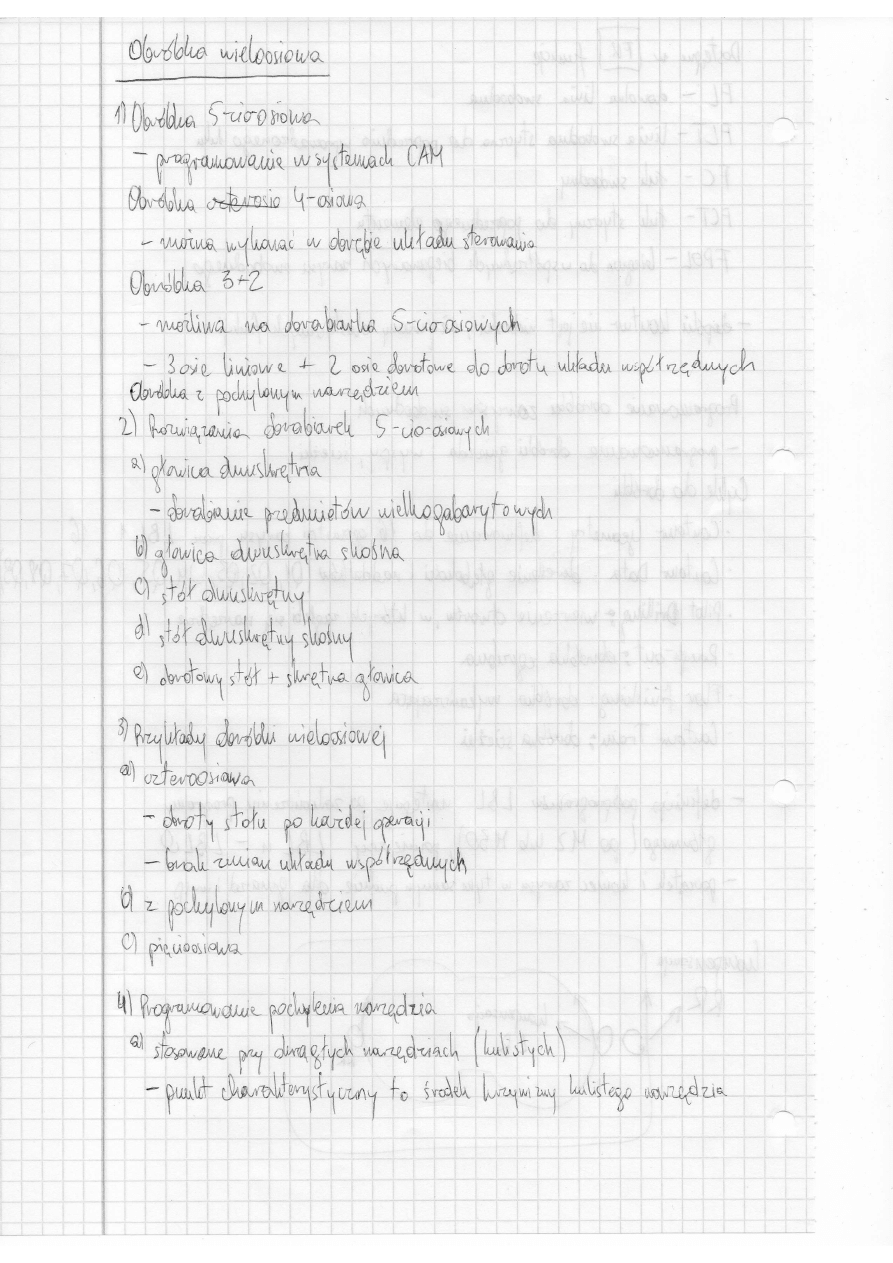 Obróbka wieloosiowa
1) Obróbka 5-cio osiowa
- programowanie w systemach CAM
Obróbka czterosio 4-osiowa
- można wykonać w obrębie układu sterowania
Obróbka 3+2
- możliwa na obrabiarka 5-cio-osiowych
- 3 osie liniowe + 2 osie obrotowe do obrotu układu współrzędnych
Obróbka z pochylonym narzędziem
2) Rozwiązania obrabiarek 5-cio-osiowych
a) głowica dwuskrętna
- obrabianie przedmiotów wielkogabarytowych
b) głowica dwuskrętna skośna
c) stół dwuskrętny
d) stół dwuskrętny skośny
e) obrotowy stół + skrętna głowica
3) Przykłady obróbki wieloosiowej
a) czteroosiowa
- obroty stołu po każdej operacji
- brak zmian układu współrzędnych
b) z pochylonym narzędziem
c) pięcioosiowa
4) Programowanie pochylenia narzędzia
a) stosowane przy okrągłych narzędziach (kulistych)
- punkt charakterystyczny to środek krzywizny kulistego narzędzia